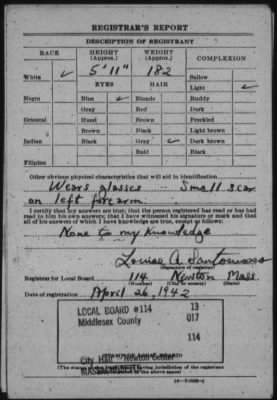 REGISTRAR'S REPORT
DESCRIPTION OF REGISTRANT
RACE HEIGHT (Approx.) WEIGHT (Approx.) COMPLEXION
White ✓ 5' 11" 182 Sallow
EYES HAIR Light ✓
Negro Blue ✓ Blonde Ruddy
Gray Red Dark
Oriental Hazel Brown Freckled
Brown Black Light brown
Indian Black Gray ✓ Dark brown
Bald Black
Filipino
Other obvious physical characteristics that will aid in identification
Wears glasses Small scar
on left forearm.
I certify that my answers are true; that the person registered has read or has had
read to him his own answers; that I have witnessed his signature or mark and that
all of his answers of which I have knowledge are true, except as follows:
None to my knowledge
Louise A.
(Signature of registrar)
Registrar for Local Board 114 Newton Mass.
(Number) (City or county) (State)
Date of registration April 26, 1942
LOCAL BOARD #114 13
Middlesex County 017
114
City Hall - Newton Center
MASS
(STAMP OF LOCAL BOARD)
(The stamp of the Local Board having jurisdiction of the registrant
shall be placed in the above space)